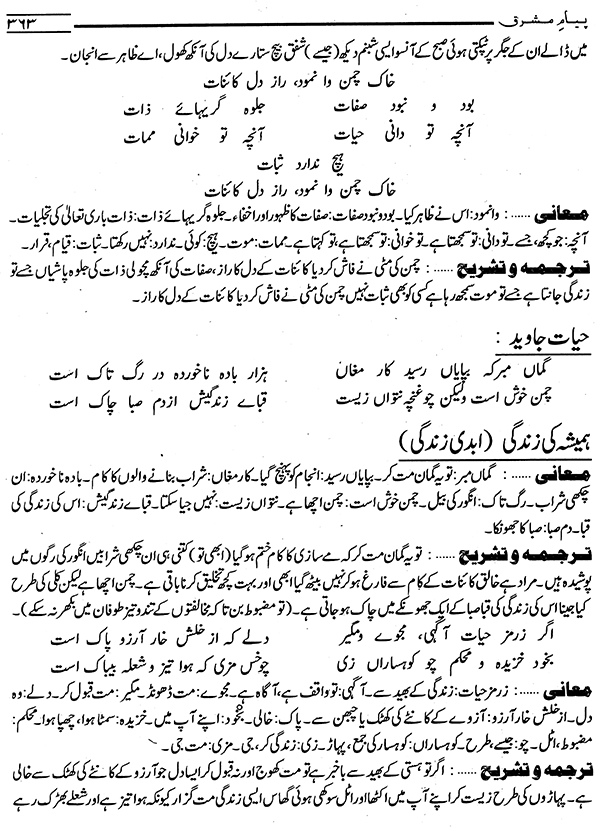 پیامِ مشرق ۳۶۳
میں ڈالے ان کے جگر پر ٹپکتی ہوئی صبح کے آنسو ایسی شبنم دیکھ (جیسے) شفق بیچ ستارے دل کی آنکھ کھول، اے ظاہر سے انجان۔
خاک چمن وا نمود، راز دل کائنات
بود و نبود صفات جلوہ گریہائے ذات
آنچہ تو دانی حیات آنچہ تو خوانی ممات
ہیچ ندارد ثبات
خاک چمن وا نمود، راز دل کائنات
معانی ...... : وانمود: اس نے ظاہر کیا۔ بود و نبود صفات: صفات کا ظہور اور اخفاء۔ جلوہ گریہائے ذات: ذات باری تعالیٰ کی تجلیات۔
آنچہ: جو کچھ، جسے تو دانی: تو سمجھتا ہے۔ تو خوانی: تو سمجھتا ہے، تو کہتا ہے۔ ممات: موت۔ ہیچ: کوئی۔ ندارد: نہیں رکھتا۔ ثبات: قیام، قرار۔
ترجمہ و تشریح ...... : چمن کی مٹی نے فاش کر دیا کائنات کے دل کا راز، صفات کی آنکھ مچولی ذات کی جلوہ پاشیاں جسے تو
زندگی جانتا ہے جسے تو موت سمجھ رہا ہے کسی کو بھی ثبات نہیں چمن کی مٹی نے فاش کر دیا کائنات کے دل کا راز۔
حیات جاوید :
گماں مبرکہ بپایاں رسید کار مغاں ہزار بادہ ناخوردہ در رگ تاک است
چمن خوش است ولیکن چوغنچہ نتواں زیست قباے زندگیش ازدم صبا چاک است
ہمیشہ کی زندگی (ابدی زندگی)
معانی ...... : گماں مبر: تو یہ گمان مت کر۔ بپایاں رسید: انجام کو پہنچ گیا۔ کار مغاں: شراب بنانے والوں کا کام۔ بادہ ناخوردہ: ان
چکھی شراب۔ رگ تاک: انگور کی بیل۔ چمن خوش است: چمن اچھا ہے۔ نتواں زیست: نہیں جیا سکتا۔ قباے زندگیش: اس کی زندگی کی
قبا۔ دم صبا: صبا کا جھونکا۔
ترجمہ و تشریح ...... : تو یہ گمان مت کر کہ مے سازی کا کام ختم ہو گیا (ابھی تو) کتنی ہی ان چکھی شرابیں انگور کی رگوں میں
پوشیدہ ہیں۔ مراد ہے خالق کائنات کے کام سے فارغ ہو کر نہیں بیٹھ گیا ابھی اور بہت کچھ تخلیق کرنا باقی ہے۔ چمن اچھا ہے لیکن کلی کی طرح
کیا جینا اس کی زندگی کی قبا صبا کے ایک جھونکے میں چاک ہو جاتی ہے۔ (تو مضبوط بن تا کہ مخالفتوں کے تند و تیز طوفان میں بکھر نہ سکے)۔
اگر زرمز حیات آگہی، مجوے و مگیر دلے کہ از خلش خار آرزو پاک است
بخود خزیدہ و محکم چو کوہساراں زی چوخس مزی کہ ہوا تیز و شعلہ بیباک است
معانی ...... : زرمز حیات: زندگی کے بھید سے۔ آگہی: تو واقف ہے، آگاہ ہے۔ مجوے: مت ڈھونڈ۔ مگیر: مت قبول کر۔ دلے: وہ
دل۔ از خلش خار آرزو: آرزو کے کانٹے کی کھٹک یا چبھن سے۔ پاک: خالی۔ بخود: اپنے آپ میں۔ خزیدہ: سمٹا ہوا، چھپا ہوا۔ محکم:
مضبوط، اٹل۔ چو: جیسے، طرح۔ کوہساراں: کوہسار کی جمع، پہاڑ۔ زی: زندگی کر، جی۔ مزی: مت جی۔
ترجمہ و تشریح ...... : اگر تو ہستی کے بھید سے باخبر ہے تو مت کھوج اور نہ قبول کر ایسا دل جو آرزو کے کانٹے کی کھٹک سے خالی
ہے۔ پہاڑوں کی طرح زیست کر اپنے آپ میں اکٹھا اور اٹل سوکھی ہوئی گھاس ایسی زندگی مت گزار کیونکہ ہوا تیز ہے اور شعلے بھڑک رہے